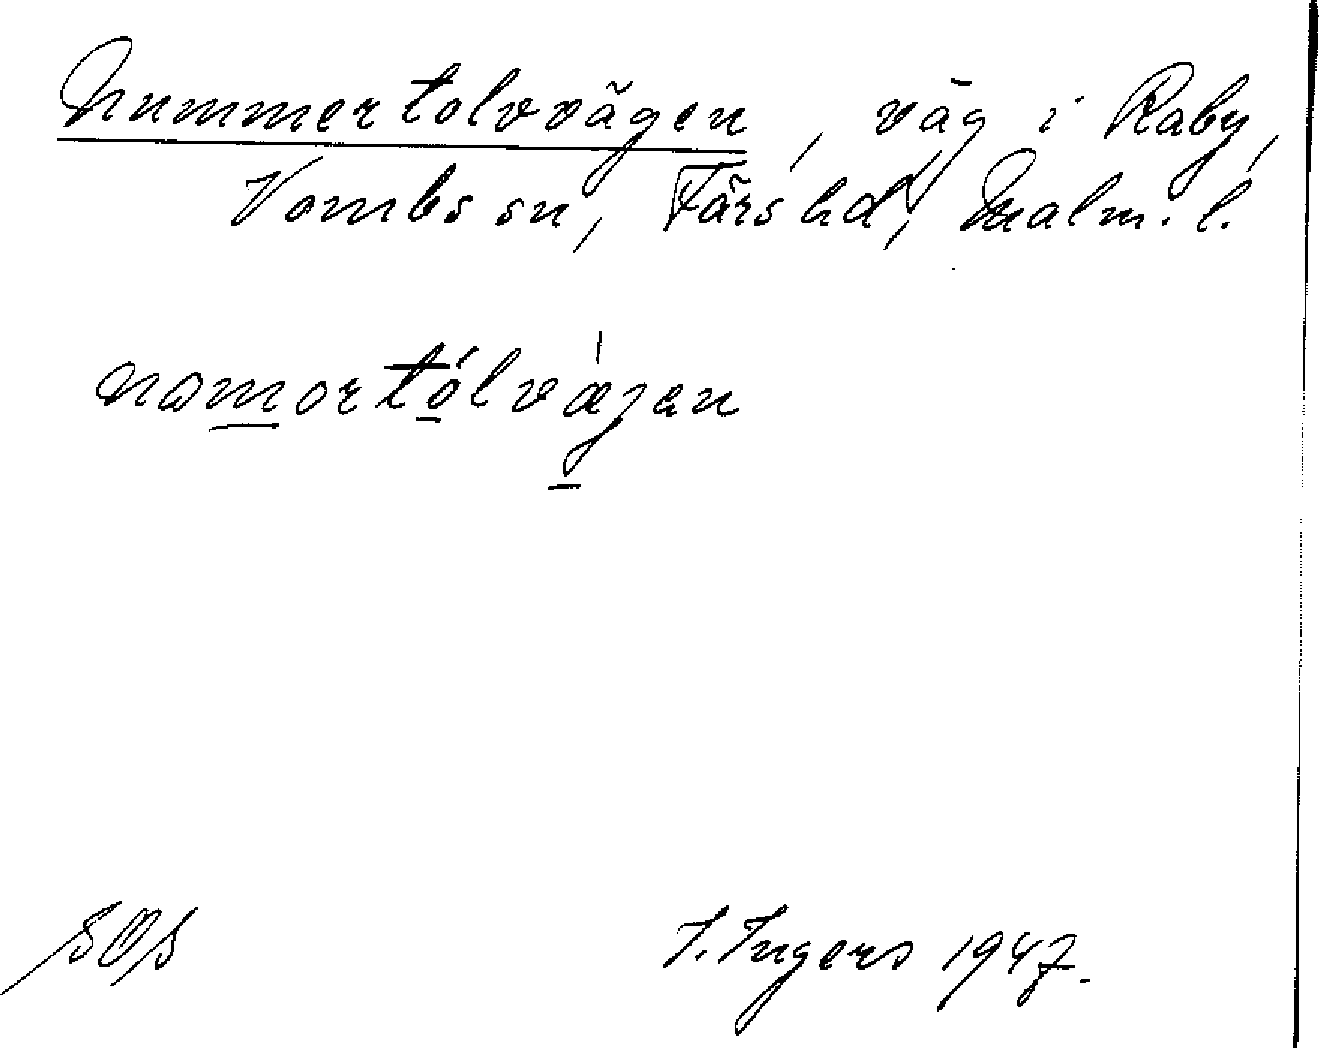 Nummertolvvägen, väg i Råby,
Vombs sn, Färs hd, Malm. l.
nomortólvægen
SOS
I. Ingers 1947.